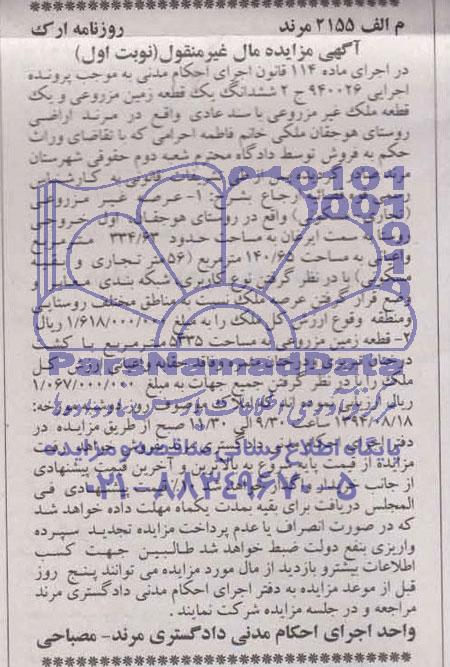 م الف ۲۱۵۵ مرند روزنامه ارک
آگهی مزایده مال غیرمنقول(نوبت اول)
در اجرای ماده ۱۱۴ قانون اجرای احکام مدنی به موجب پرونده
اجرایی ۹۴۰۰۲۶ ج ۲ ششدانگ یک قطعه زمین مزروعی و یک
قطعه ملک غیر مزروعی با سند عادی واقع در مرند اراضی
روستای هوجقان ملکی خانم فاطمه احرامی که با تقاضای وراث
حکم به فروش توسط دادگاه محترم شعبه دوم حقوقی شهرستان
مرند صادر گردیده پس از طی تشریفات قانونی به کارشناس
رسمی ارجاع بشرح: ۱- عرصه غیر مزروعی
(تجاری، مسکونی) واقع در روستای هوجقان اول خروجی
روستا سمت ایرغان به مساحت حدود ۳۳۴/۶۳ مترمربع
واعیانی به مساحت ۱۴۰/۶۵ مترمربع (۵۶ متر تجاری و بقیه
مسکونی) با در نظر گرفتن نوع کاربری شبکه بندی معابر و
وضع قرار گرفتن عرصه ملک نسبت به مناطق مختلف روستایی
ومنطقه وقوع ارزش کل ملک را به مبلغ ۱/۶۱۸/۰۰۰/۰۰۰ ریال
۲- قطعه زمین مزروعی به مساحت ۵۳۳۵ مترمربع با کشت
درختان ارزش کل
ملک را با در نظر گرفتن جمیع جهات به مبلغ ۱/۰۶۷/۰۰۰/۰۰۰
ریال ارزیابی املاک موصوف روز دوشنبه مورخه:
۱۳۹۴/۰۸/۱۸ ساعت ۹/۳۰ الی ۱۱/۳۰ صبح از طریق مزایده در
دفتر اجرای احکام مدنی دادگستری مرند بفروش خواهد رسید
مزایده از قیمت پایه شروع به بالاترین و آخرین قیمت پیشنهادی
از جانب خریدار واگذار خواهد شد ۱۰٪ قیمت پیشنهادی فی
المجلس دریافت برای بقیه بمدت یکماه مهلت داده خواهد شد
که در صورت انصراف یا عدم پرداخت مزایده تجدید سپرده
واریزی بنفع دولت ضبط خواهد شد طالبین جهت کسب
اطلاعات بیشترو بازدید از مال مورد مزایده می توانند پنج روز
قبل از موعد مزایده به دفتر اجرای احکام مدنی دادگستری مرند
مراجعه و در جلسه مزایده شرکت نمایند .
واحد اجرای احکام مدنی دادگستری مرند- مصباحی
ParsNamadData
پایگاه اطلاع رسانی مناقصه و مزایده
۰۲۱-۸۸۳۴۹۶۷۰-۵